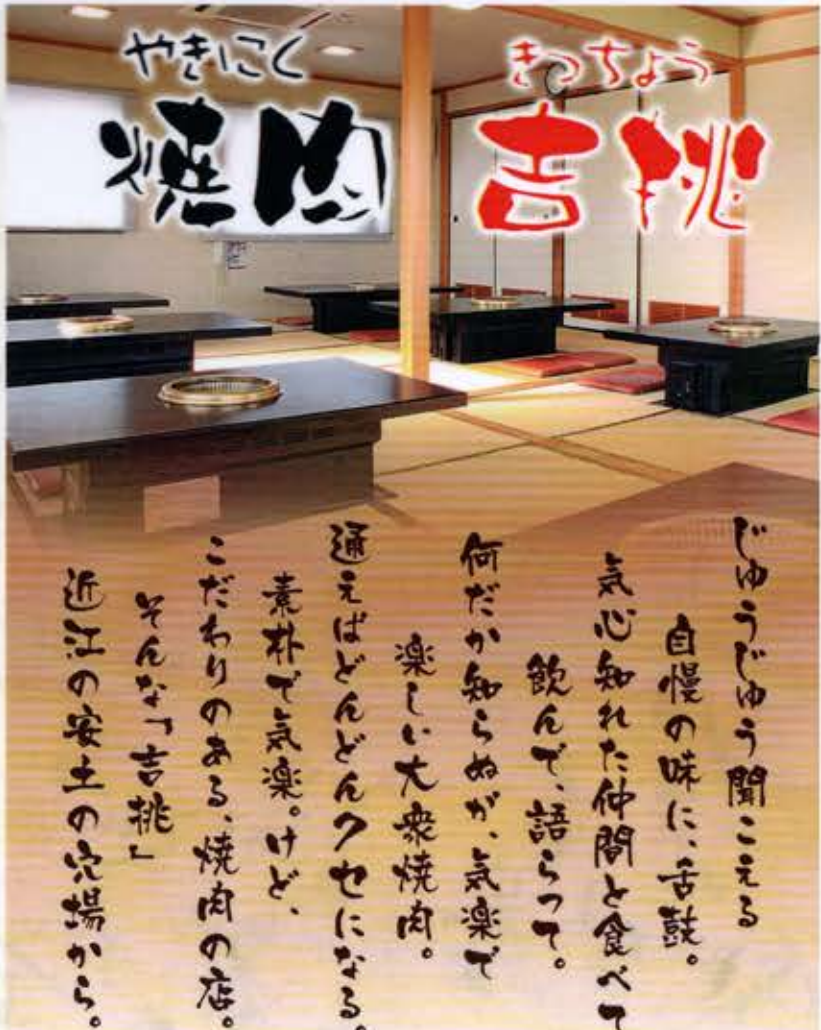 やきにく
焼肉
きっちょう
吉挑
じゅうじゅう聞こえる
自慢の味に、舌鼓。
気心知れた仲間と食べて
飲んで、語らって。
何だか知らぬが、気楽で
楽しい大衆焼肉。
通えばどんどんクセになる。
素朴で気楽。けど、
こだわりのある、焼肉の店。
そんな「吉挑」
近江の安土の穴場から。